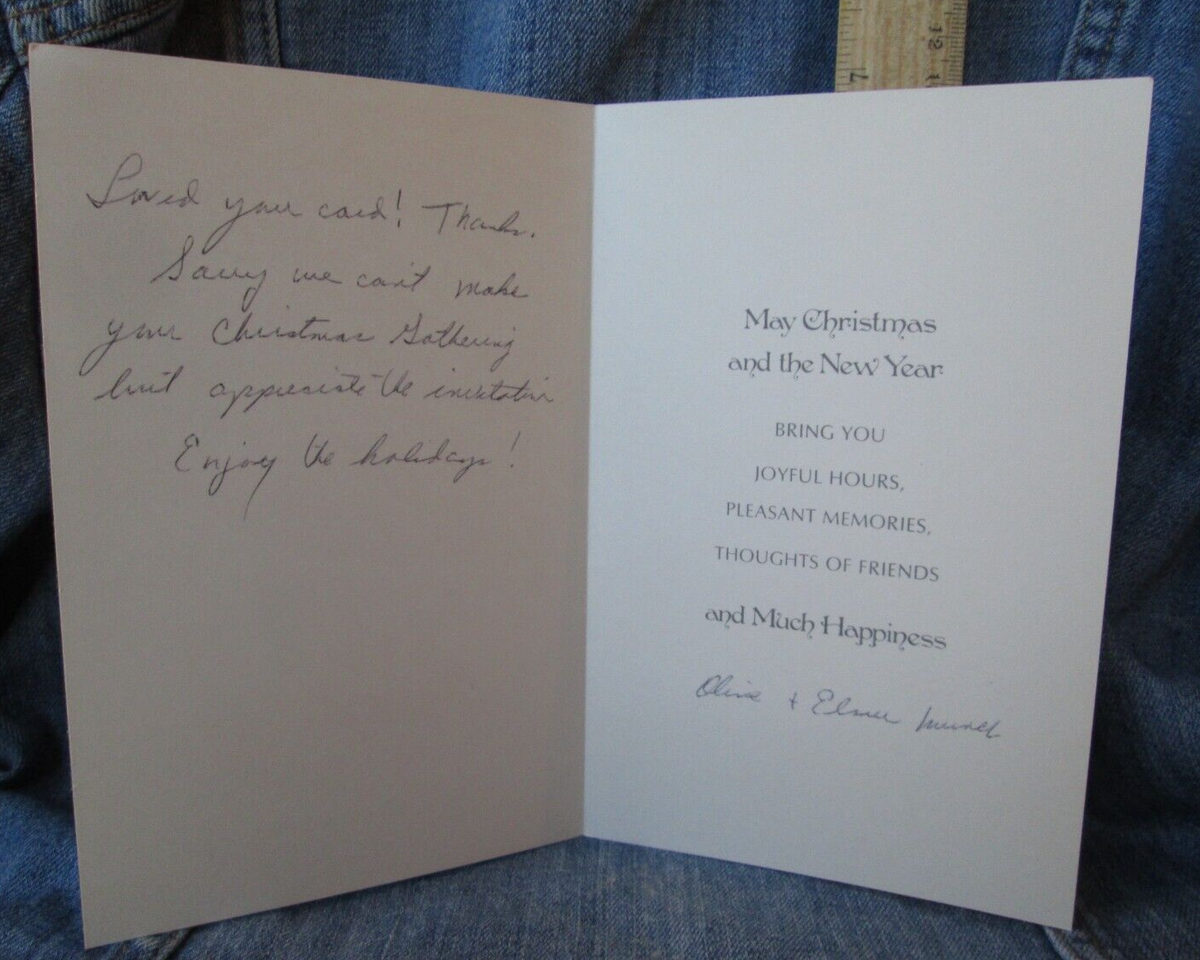 Loved your card! Thanks.
Sorry we can't make
your Christmas Gathering
but appreciate the invitation
Enjoy the holidays!
7
12
May Christmas
and the New Year
BRING YOU
JOYFUL HOURS,
PLEASANT MEMORIES,
THOUGHTS OF FRIENDS
and Much Happiness
Olive + Elmer